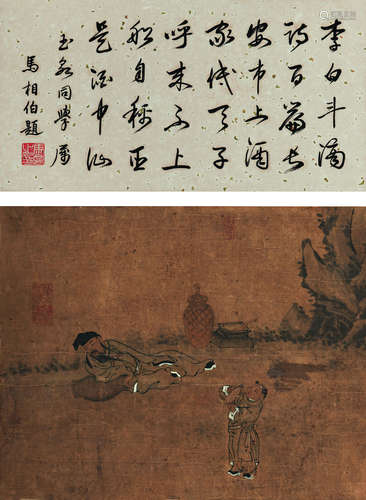 李白斗酒
詩百篇長
安市上酒
家眠天子
呼来不上
船自稱臣
是酒中仙
玉同學属
馬相伯題